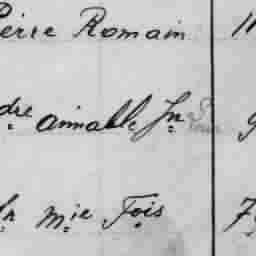 Pierre Romain M
dre aimable Jn
Jn mie Fois 7